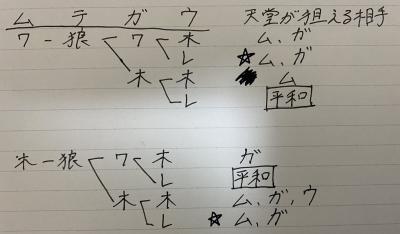 ム テ ガ ウ 天堂が狙える相手
ワ ー 狼 ワ 木 ム、ガ
レ ☆ ム、ガ
木 木 ム
レ 平和
木 ー 狼 ワ 木 ガ
レ 平和
木 木 ム、ガ、ウ
レ ☆ ム、ガ